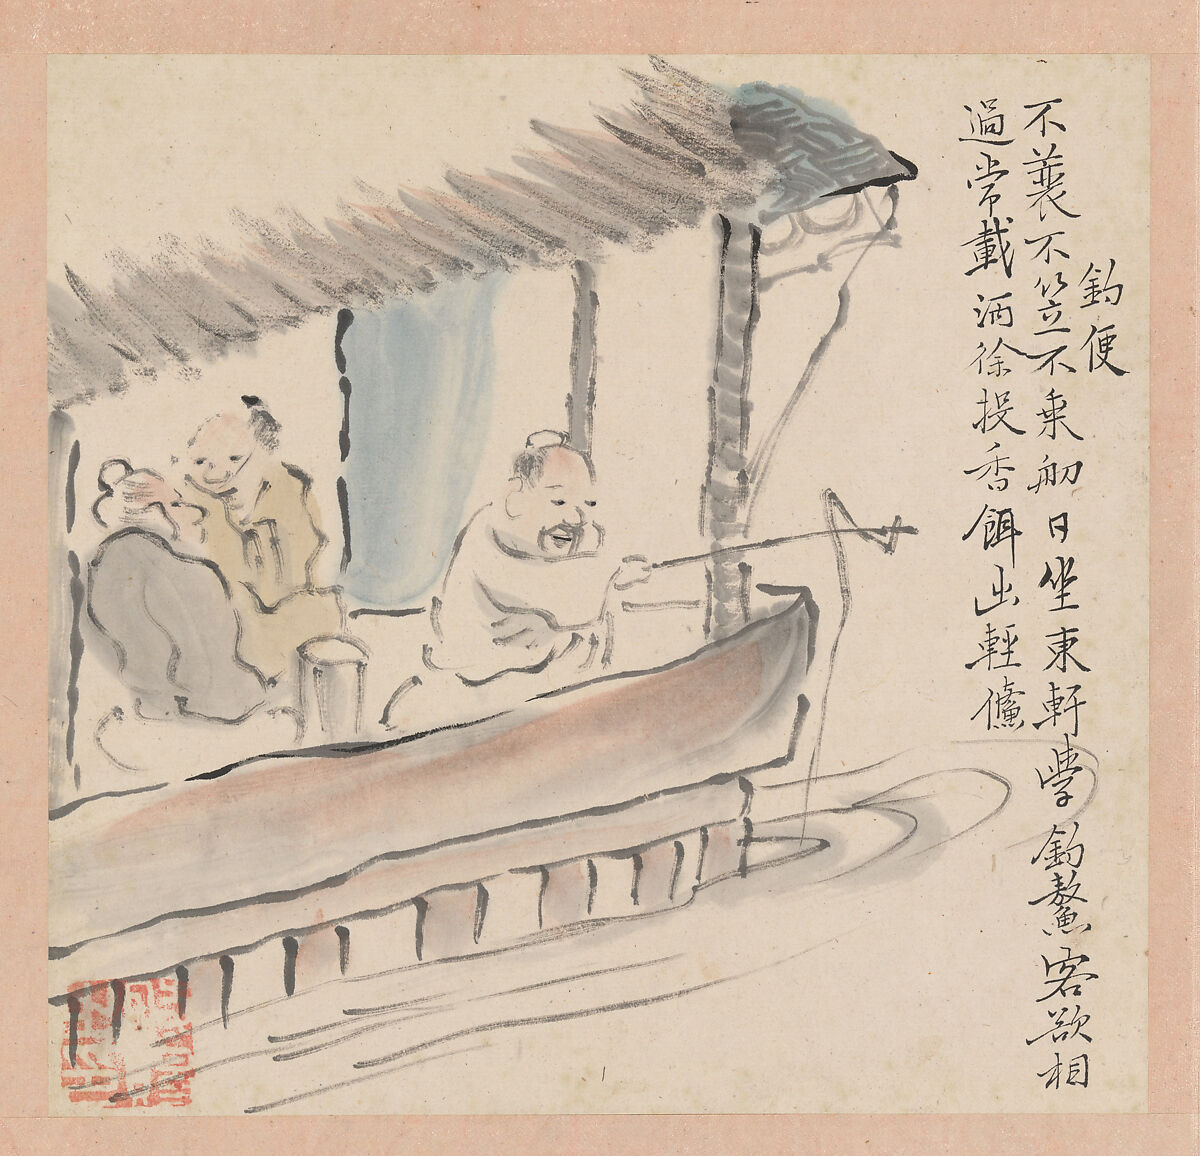 釣便
不蓑不笠不乘舠日坐東軒學釣鰲客欲相
過常載酒徐投香餌出輕鯈